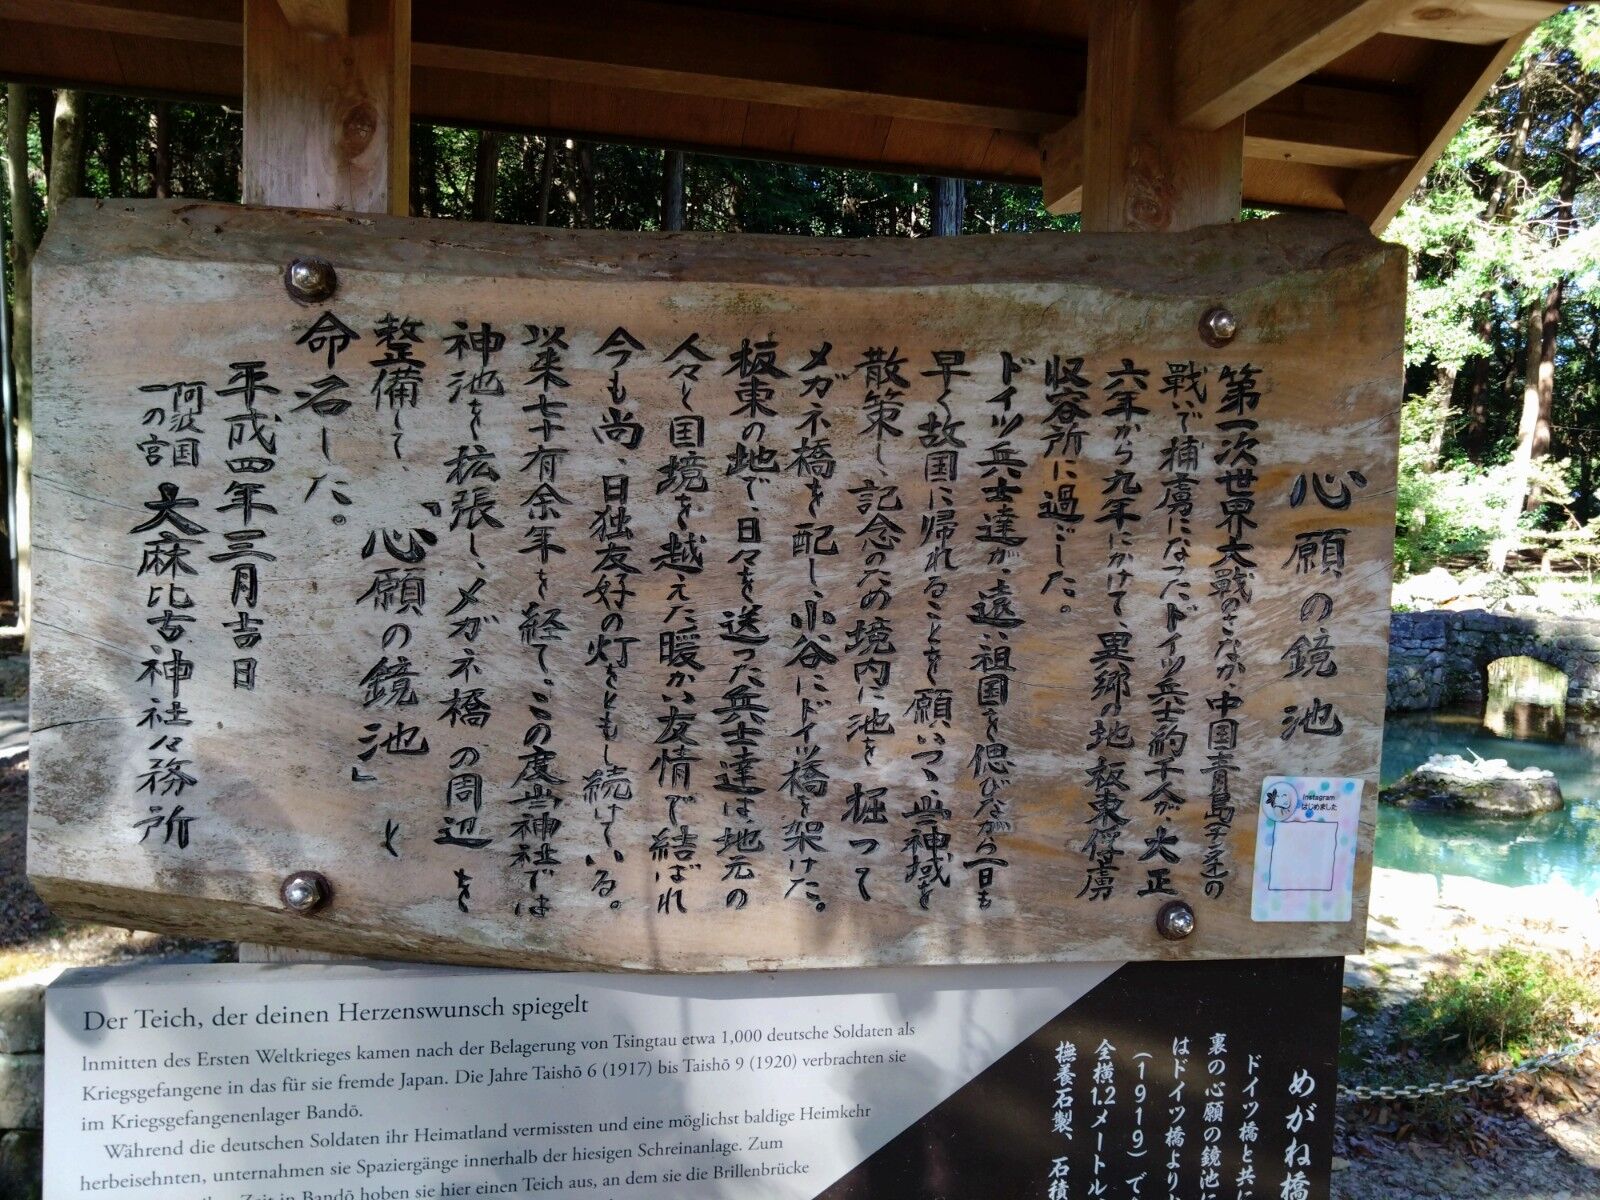 心願の鏡池
第一次世界大戦のさなか、中国青島(チンタオ)の
戦いで捕虜になったドイツ兵士約千人が、大正
六年から九年にかけて、異郷の地板東俘虜
収容所に過ごした。
ドイツ兵士達が、遠い祖国を偲びながら一日も
早く故国に帰れることを願いつつ、当神域を
散策し、記念のため境内に池を掘って
メガネ橋を配し、小谷にドイツ橋を架けた。
板東の地で、日々を送った兵士達は地元の
人々と国境を越えた暖かい友情で結ばれ
今も尚、日独友好の灯をともし続けている。
以来七十有余年を経て、この度当神社では
神池を拡張し、メガネ橋の周辺を
整備して、「心願の鏡池」と
命名した。
平成四年三月吉日
阿波国
一の宮 大麻比古神社々務所
Instagram
はじめました
Der Teich, der deinen Herzenswunsch spiegelt
Inmitten des Ersten Weltkrieges kamen nach der Belagerung von Tsingtau etwa 1,000 deutsche Soldaten als
Kriegsgefangene in das für sie fremde Japan. Die Jahre Taishō 6 (1917) bis Taishō 9 (1920) verbrachten sie
im Kriegsgefangenenlager Bandō.
Während die deutschen Soldaten ihr Heimatland vermissten und eine möglichst baldige Heimkehr
herbeisehnten, unternahmen sie Spaziergänge innerhalb der hiesigen Schreinanlage. Zum
Zeit in Bandō hoben sie hier einen Teich aus, an dem sie die Brillenbrücke
めがね橋
ドイツ橋と共に
裏の心願の鏡池に
はドイツ橋より
(1919)で
全横1.2メートル
撫養石製、石積